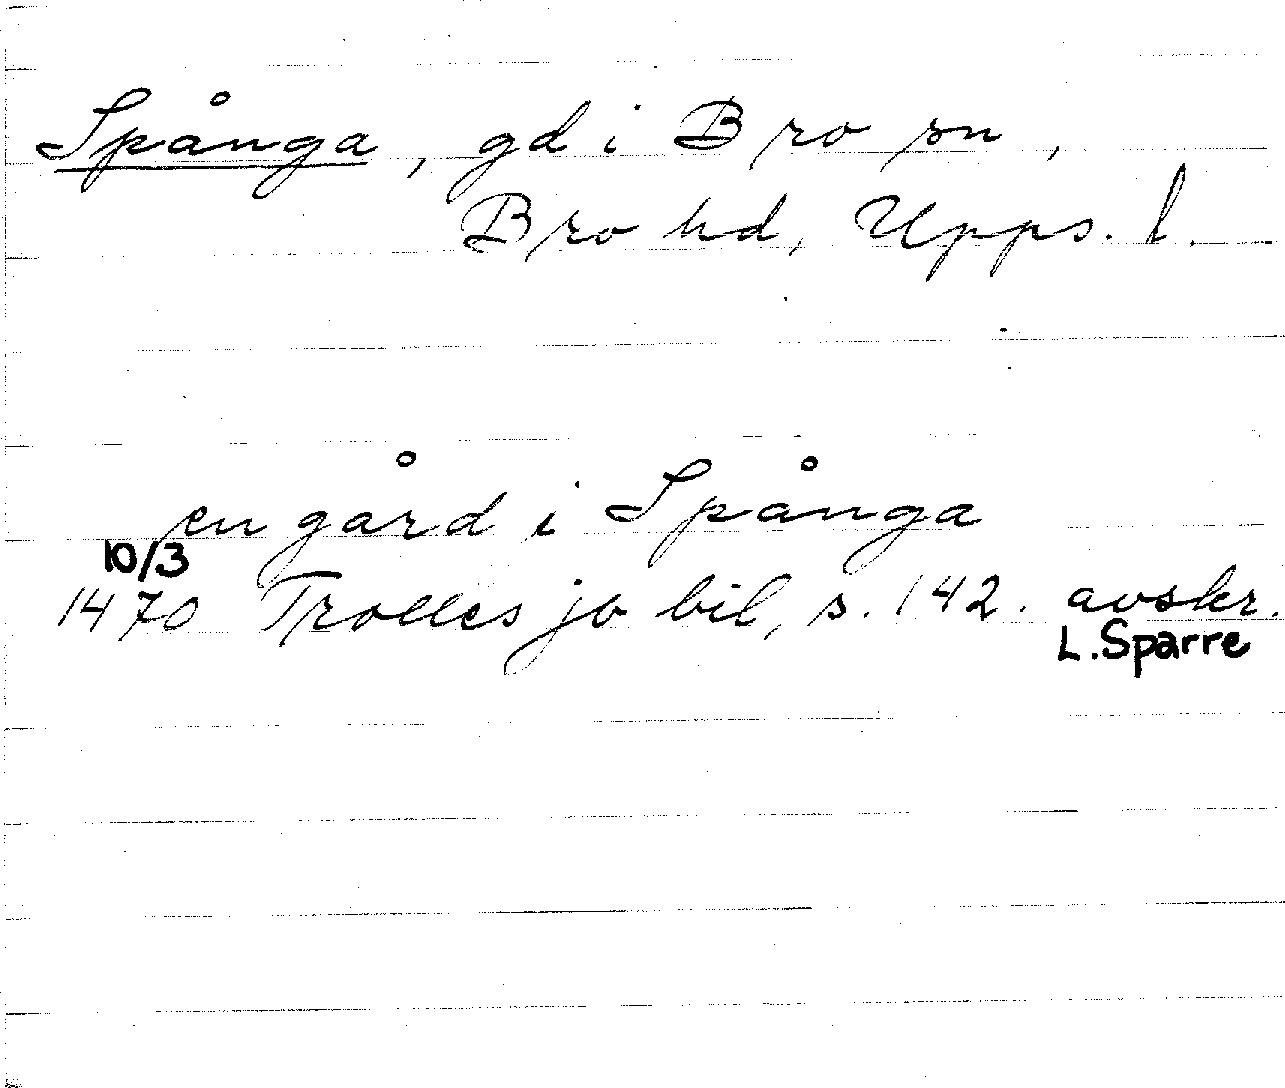 Spånga, gd i Bro sn,
Bro hd, Upps. l.
en gård i Spånga
10/3
1470 Trolles jb bil, s. 142. avskr.
L. Sparre